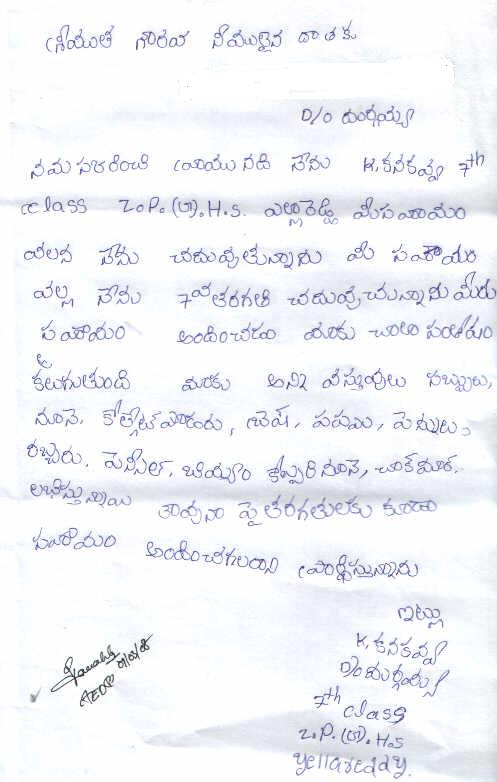 శ్రీయుత గౌరవ నీయులైన దాతకు
D/o దుర్గయ్య
నమస్కరించి వ్రాయునది నేను K. కనకవ్వ 7th
class Z.P.(U).H.S. ఎల్లారెడ్డి మీసహాయం
వలన నేను చదువుతున్నాను మీ సహాయం
వల్ల నేను 7వతరగతి చదువుచున్నాను మీరు
సహాయం అందించడం మాకు చాలా సంతోషం
కలుగుతుంది మాకు అన్ని వస్తువులు సబ్బులు,
నూనె, కోల్గేట్ పౌడరు, బ్రెష్, పెన్నులు,
రబ్బరు, పెన్సిల్, బియ్యం కొబ్బరినూనె,
లభిస్తున్నాయి పై తరగతులకు కూడా
సహాయం అందించగలరాని ప్రార్థిస్తున్నాను
ఇట్లు
K. కనకవ్వ
D/o దుర్గయ్య
7th class
Z.P.(U).H.S
yellareddy.